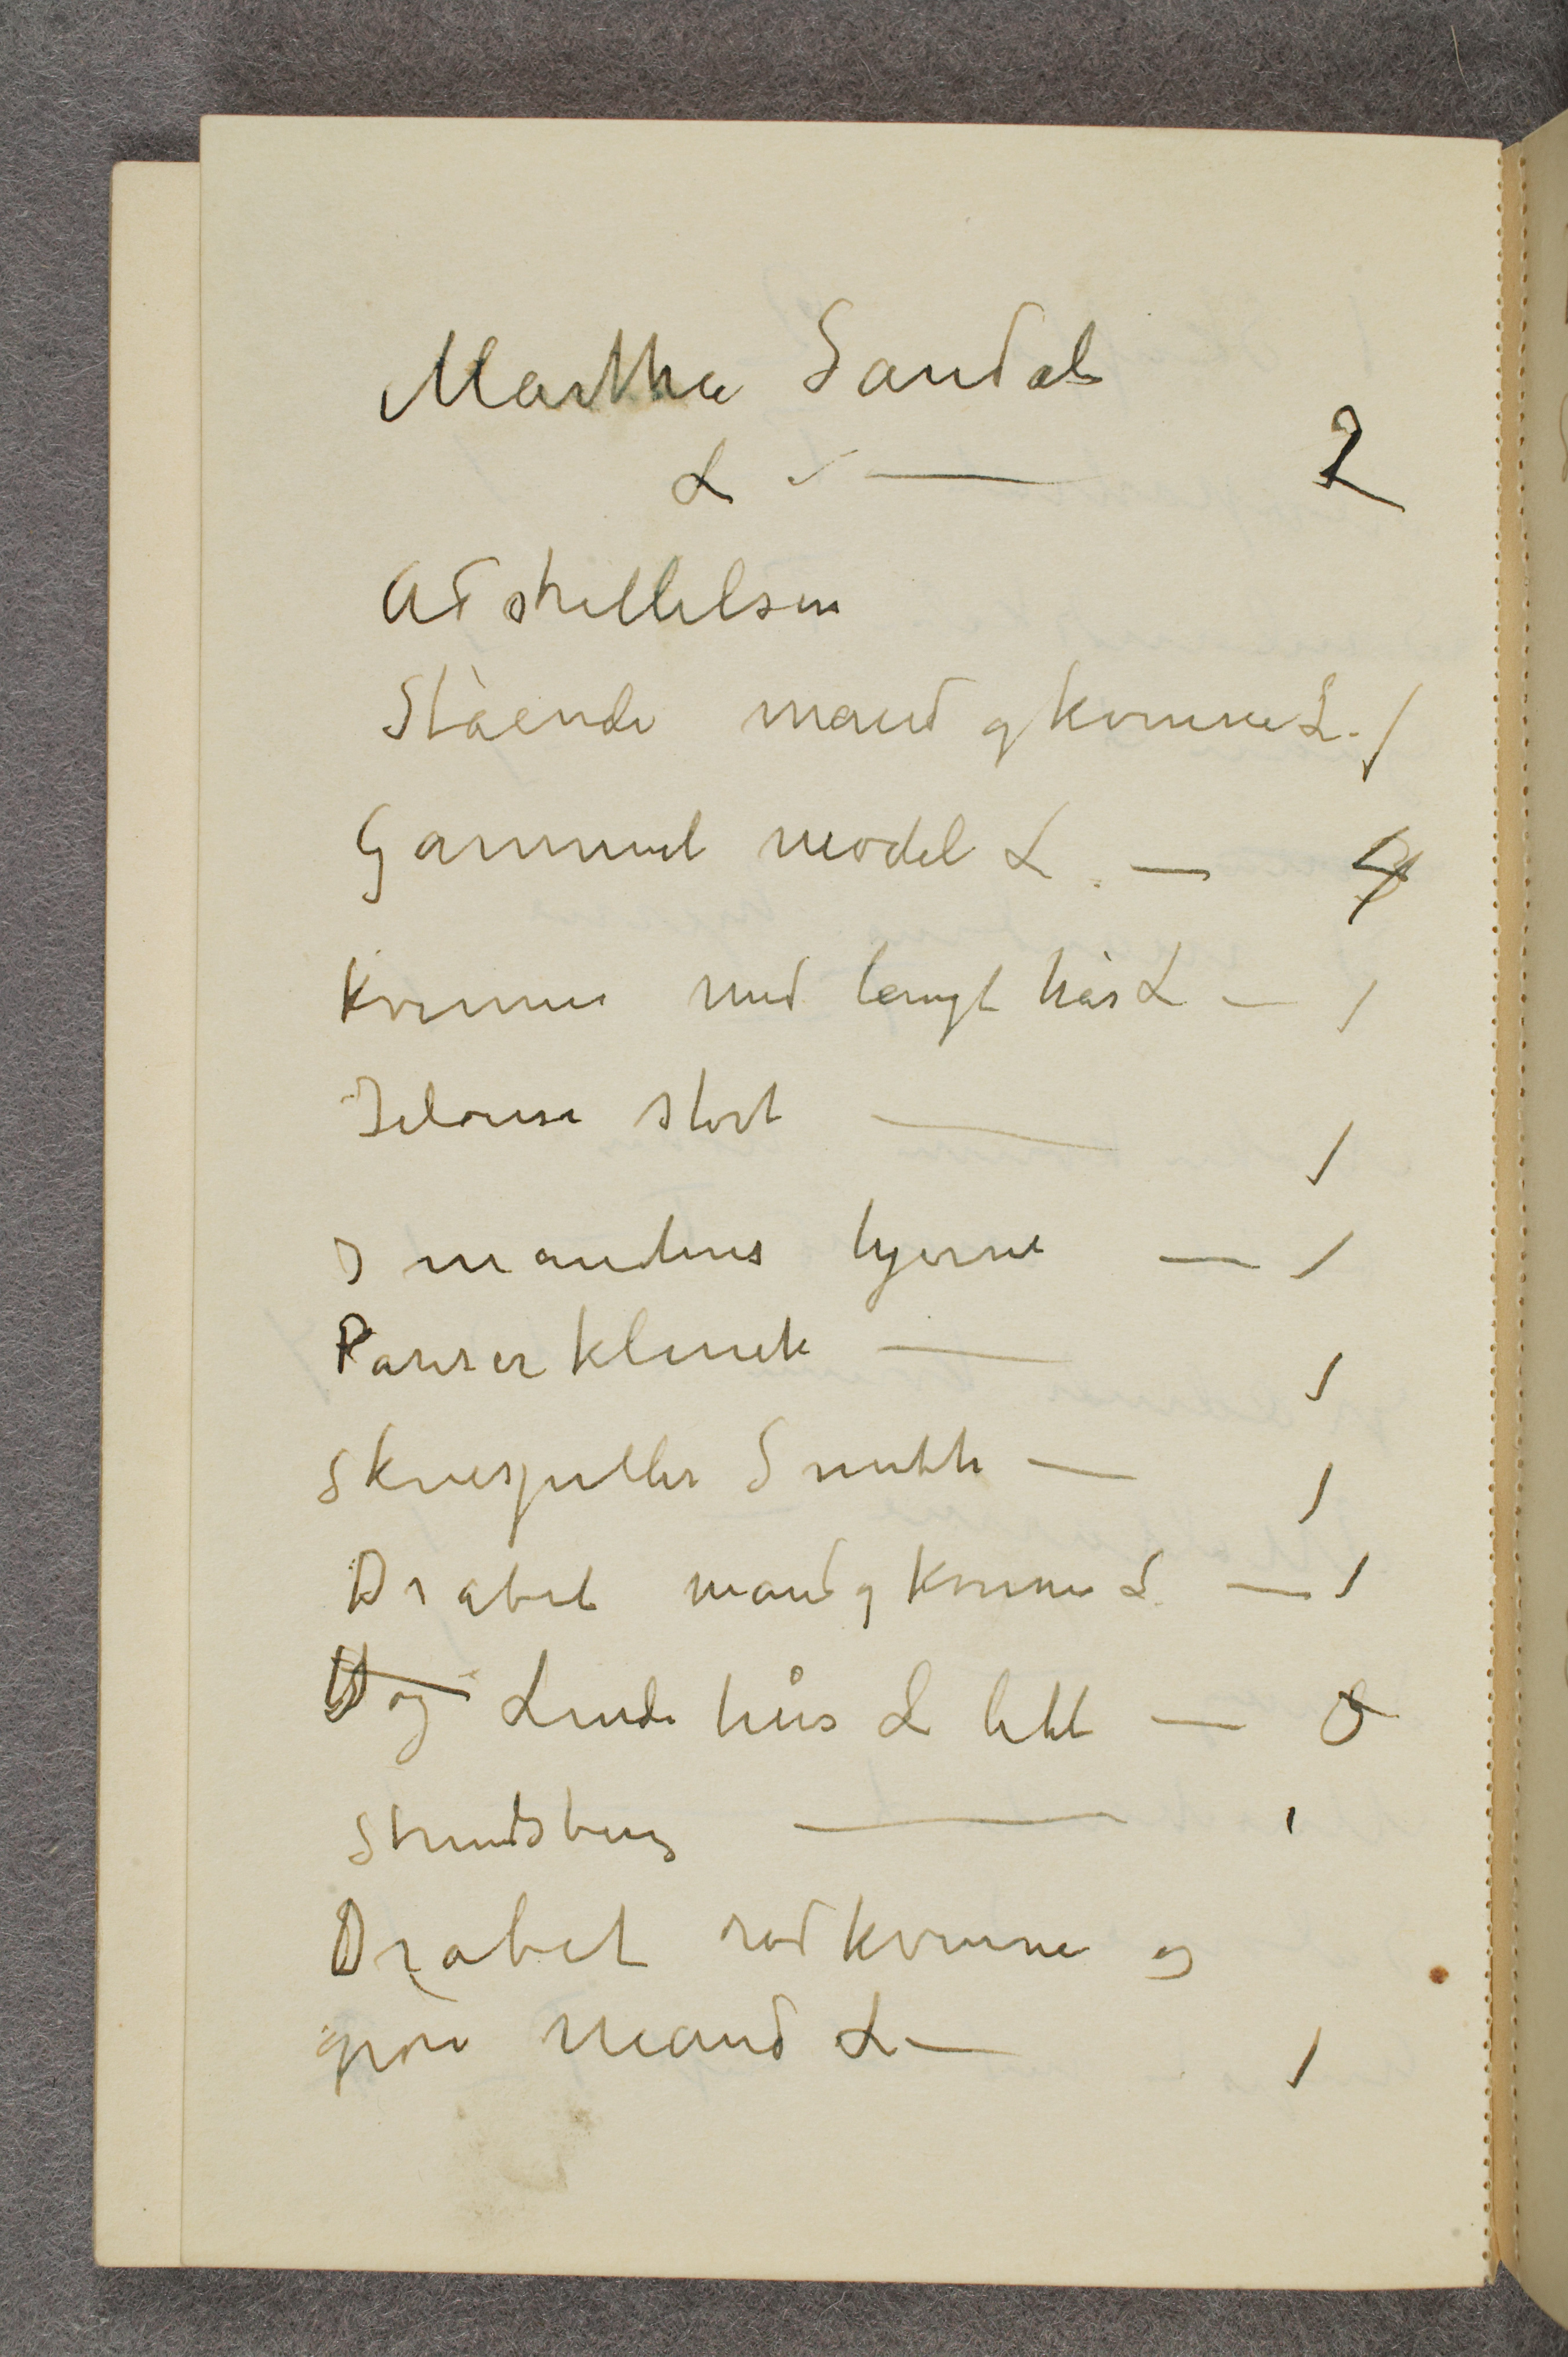 Martha Sandal
L — 2
Adskillelsen
Stående mand og kvinne L. 1
Gammel model L. — 4
Kvinne med langt hår L — 1
Jelousi stort — 1
I mandens hjerne — 1
Pariserklinik — 1
Skuespiller Smith — 1
Drabet mand og kvinne L — 1
og Linde hus L litt — 0
Strindberg — 1
Drabet rød kvinne og
grøn mand L — 1